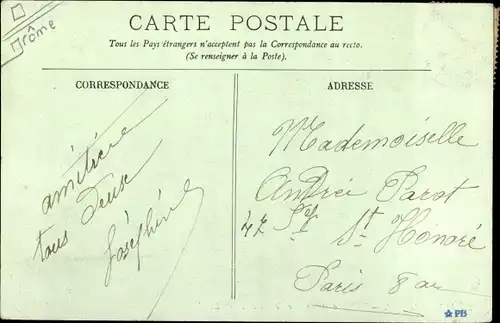 Drôme
CARTE POSTALE
Tous les Pays étrangers n'acceptent pas la Correspondance au recto.
(Se renseigner à la Poste).
CORRESPONDANCE
ADRESSE
tous deux
Joséphine
Mademoiselle
Andrée Parot
42
St Honoré
Paris 8 ar
PB